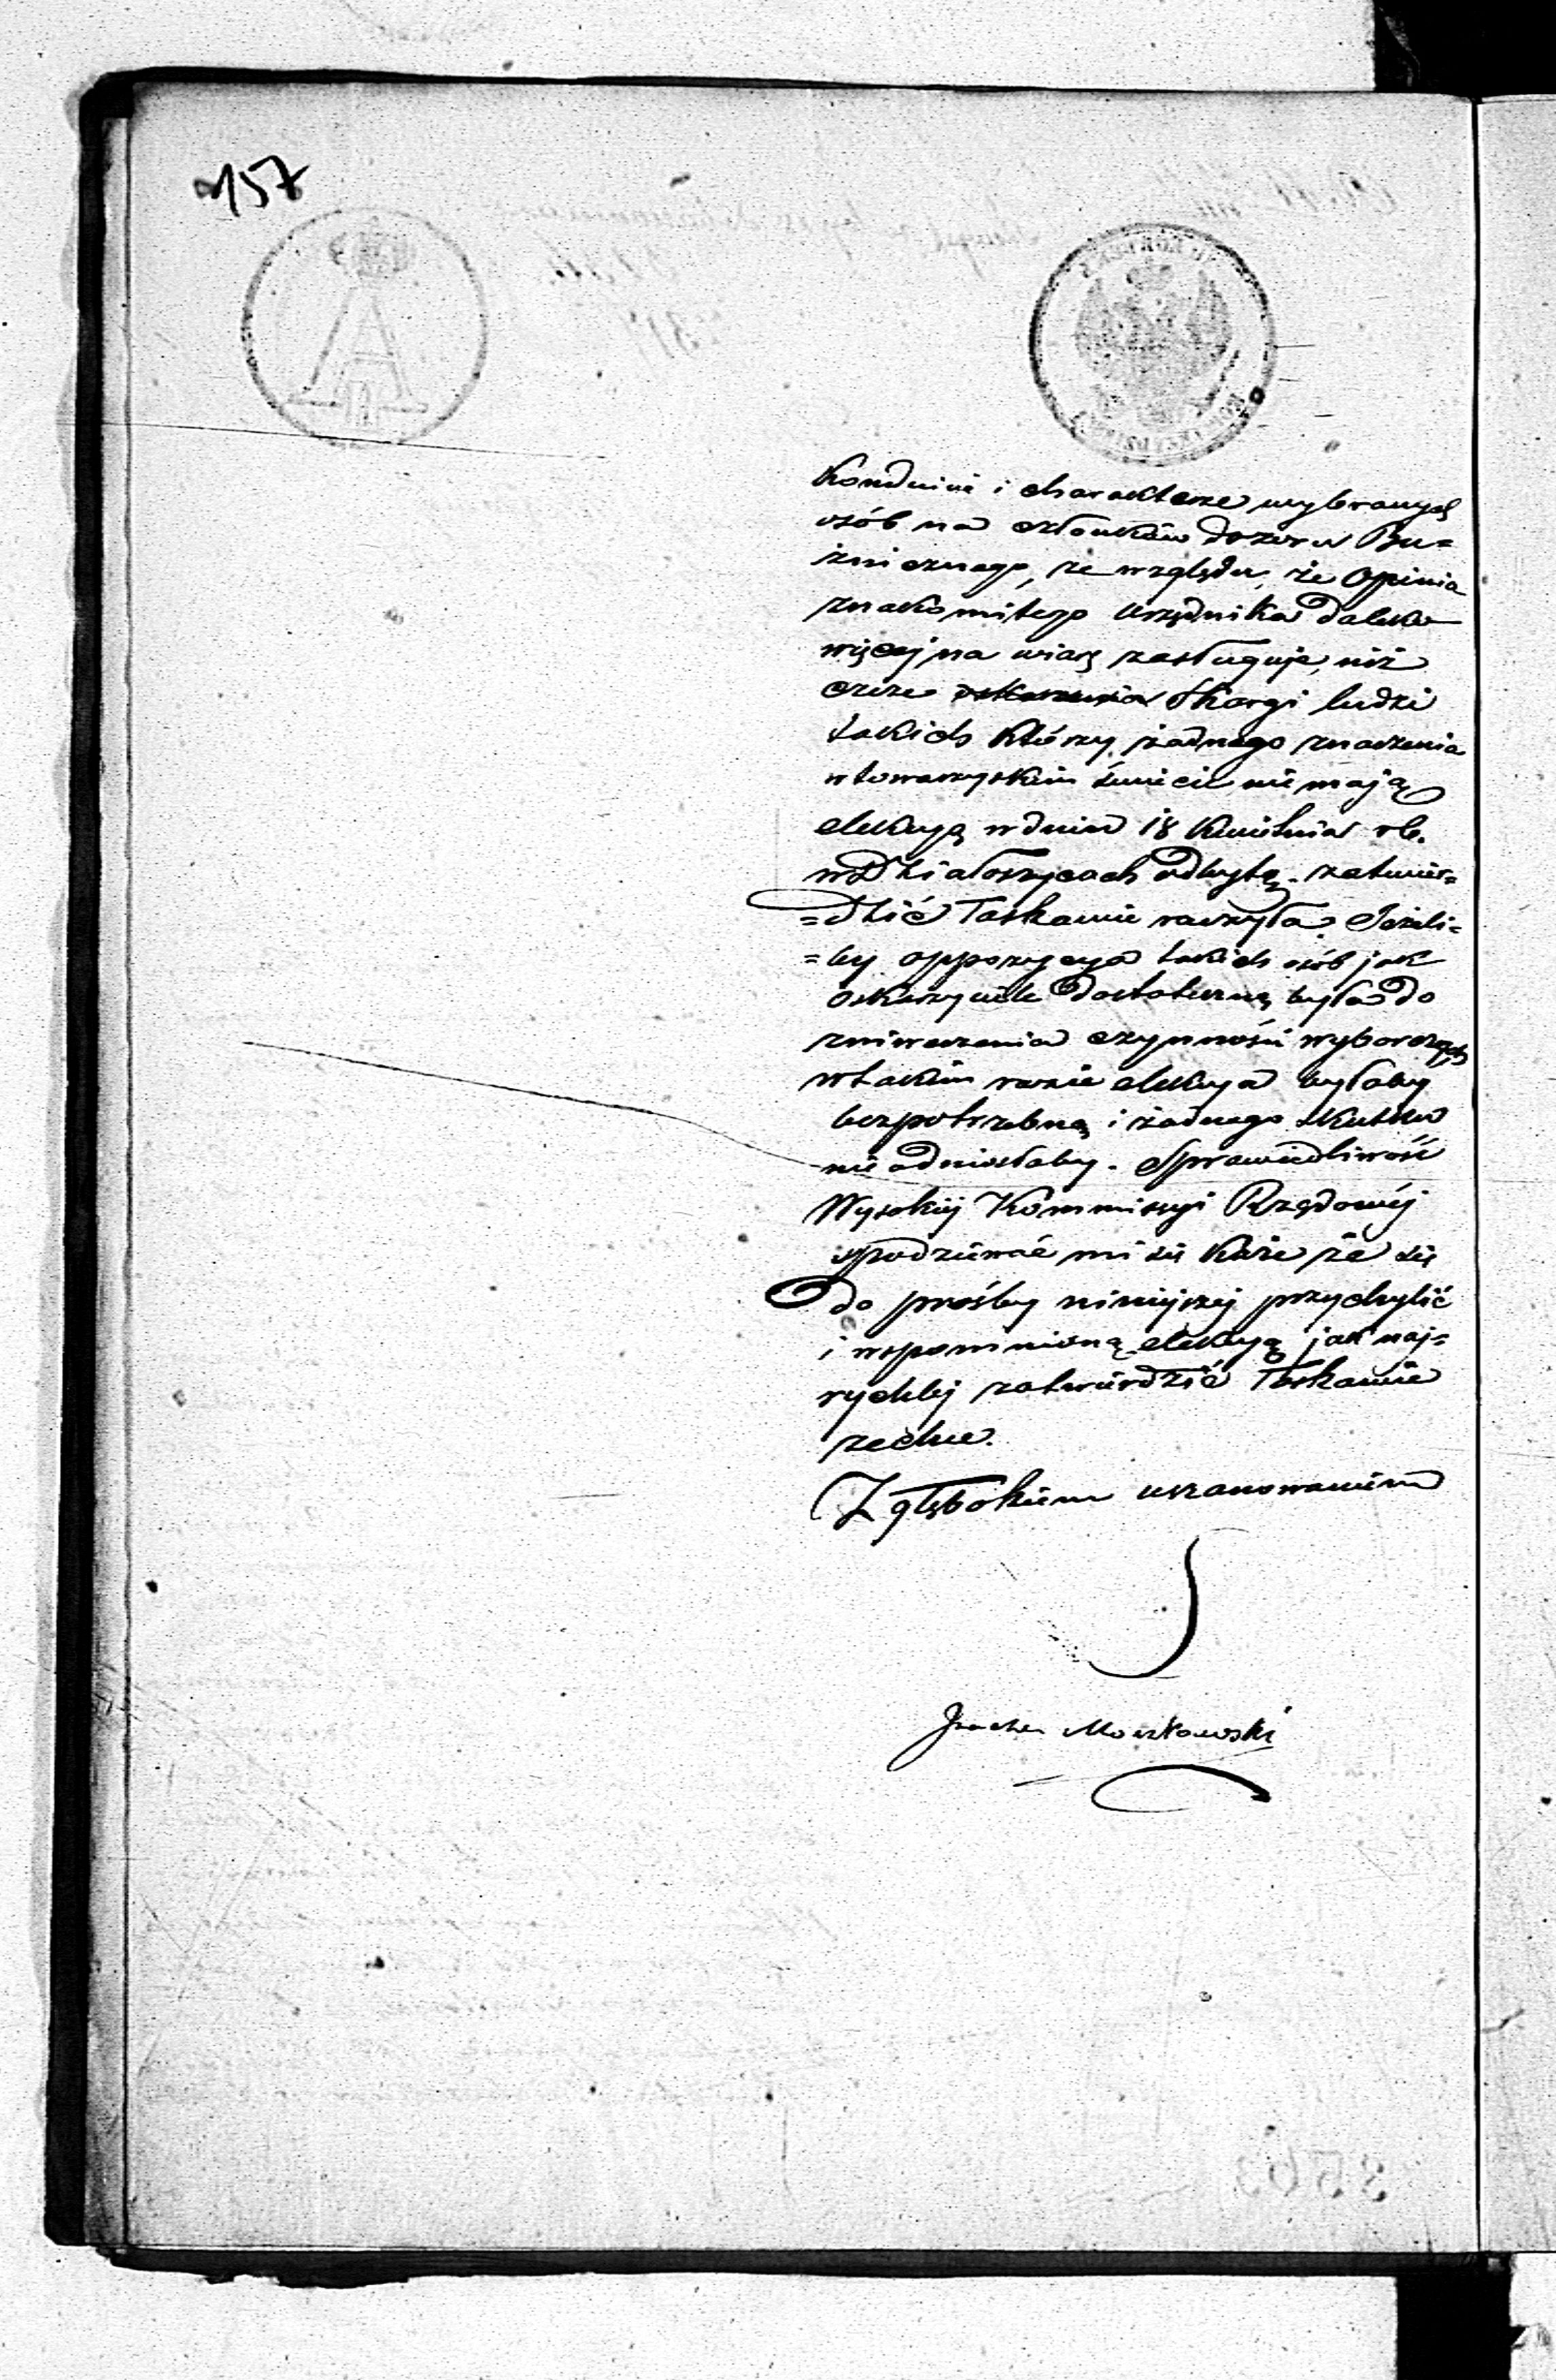 157
Konduicie i charakterze wybranych
osób na członków dozoru Bu=
żnicznego, ze względu, że Opinia
znakomitego Urzędnika daleko
więcej na wiarę zasługuje, niż
czcze skargi ludzi
takich którzy żadnego znaczenia
w towarzyskim świecie nie mają
elekcyą w dniu 18 Kwietnia rb.
w Działoszycach odbytą zatwier=
=dzić łaskawie raczyła. Jeżeli=
=by oppozycya takich osób jak
Oskarzyciele dostateczną była do
zniweczenia czynności wyborczych
w takim razie elekcya byłaby
bezpotrzebną i żadnego skutku
nie odniosłaby. Sprawiedliwość
Wysokiéj Kommissyi Rządowéj
spodziewać mi się każe że się
do prośby niniejszej przychylić
i wspomnioną elekcyą jak naj=
rychlej zatwierdzić łaskawie
zechce.
Z głębokiem uszanowaniem
Moszkowski